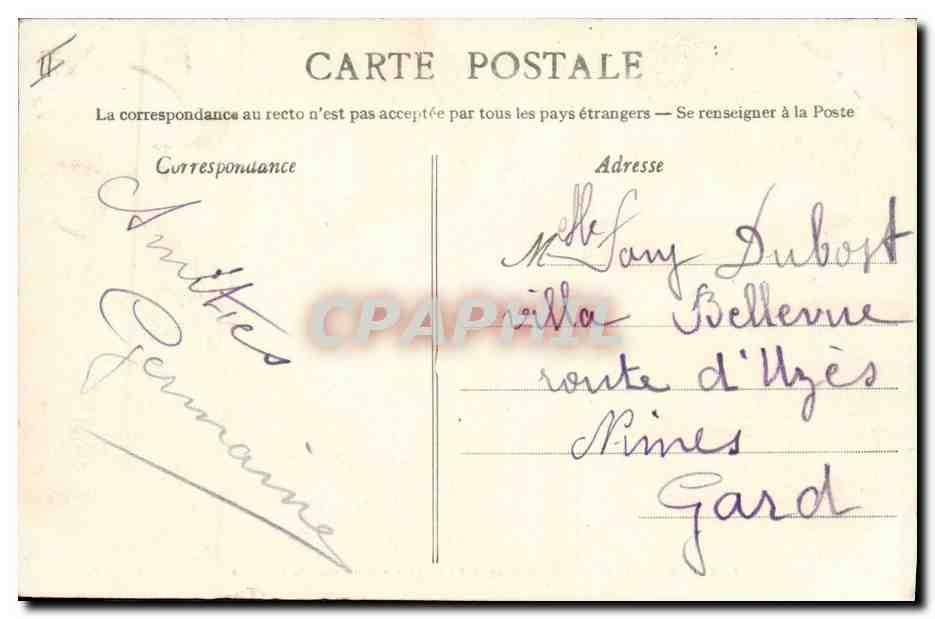 II
CARTE POSTALE
La correspondance au recto n'est pas acceptée par tous les pays étrangers — Se renseigner à la Poste
Correspondance
Amitiés
Germaine
Adresse
Mlle Dubost
villa Bellevue
route d'Uzès
Nimes
Gard
CPAPHIL